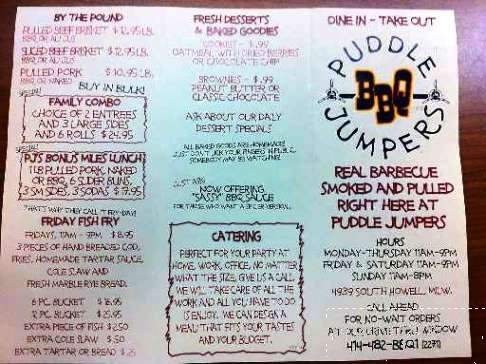 BY THE POUND
PULLED BEEF BRISKET $12.95 LB.
BBQ OR AU JUS
SLICED BEEF BRISKET $12.95 LB.
BBQ OR AU JUS
PULLED PORK $10.95 LB.
BBQ OR NAKED
BUY IN BULK!
SPECIAL!
FAMILY COMBO
CHOICE OF 2 ENTREES
AND 3 LARGE SIDES
AND 6 ROLLS $24.95
SPECIAL!
PJ'S BONUS MILES LUNCH
1 LB PULLED PORK NAKED
OR BBQ, 6 SLIDER BUNS,
3 SM SIDES, 3 SODAS
THAT'S WHY THEY CALL IT FRY-DAY!
FRIDAY FISH FRY
FRIDAYS, 11AM - 9PM $8.95
3 PIECES OF HAND BREADED COD,
FRIES, HOMEMADE TARTAR SAUCE,
COLE SLAW AND
FRESH MARBLE RYE BREAD.
6 PC. BUCKET $18.95
12 PC. BUCKET $25.95
EXTRA PIECE OF FISH $2.50
EXTRA COLE SLAW $.50
EXTRA TARTAR OR BREAD $.25
FRESH DESSERTS
& BAKED GOODIES
COOKIES - $.99
OATMEAL WITH DRIED BERRIES
OR CHOCOLATE CHIP
BROWNIES - $.99
PEANUT BUTTER OR
CLASSIC CHOCOLATE
ASK ABOUT OUR DAILY
DESSERT SPECIALS
ALL BAKED GOODS ARE HOMEMADE!
JUST DON'T LICK YOUR FINGERS IN PUBLIC,
SOMEBODY MAY BE WATCHING!
NOW OFFERING
"SASSY" BBQ SAUCE
FOR THOSE WHO WANT A SPICIER VERSION.
CATERING
PERFECT FOR YOUR PARTY AT
HOME, WORK, OFFICE, NO MATTER
WHAT THE SIZE, GIVE US A CALL.
WE WILL TAKE CARE OF ALL THE
WORK AND ALL YOU HAVE TO DO
IS ENJOY. WE CAN DESIGN A
MENU THAT FITS YOUR TASTES
AND YOUR BUDGET.
DINE IN - TAKE OUT
PUDDLE
BBQ
JUMPERS
REAL BARBECUE
SMOKED AND PULLED
RIGHT HERE AT
PUDDLE JUMPERS
HOURS
MONDAY-THURSDAY 11AM-9PM
FRIDAY & SATURDAY 11AM-9PM
SUNDAY 11AM-8PM
4939 SOUTH HOWELL, MILW.
CALL AHEAD
FOR NO-WAIT ORDERS
AT OUR DRIVE THRU WINDOW
414-482-BBQ1 (2271)